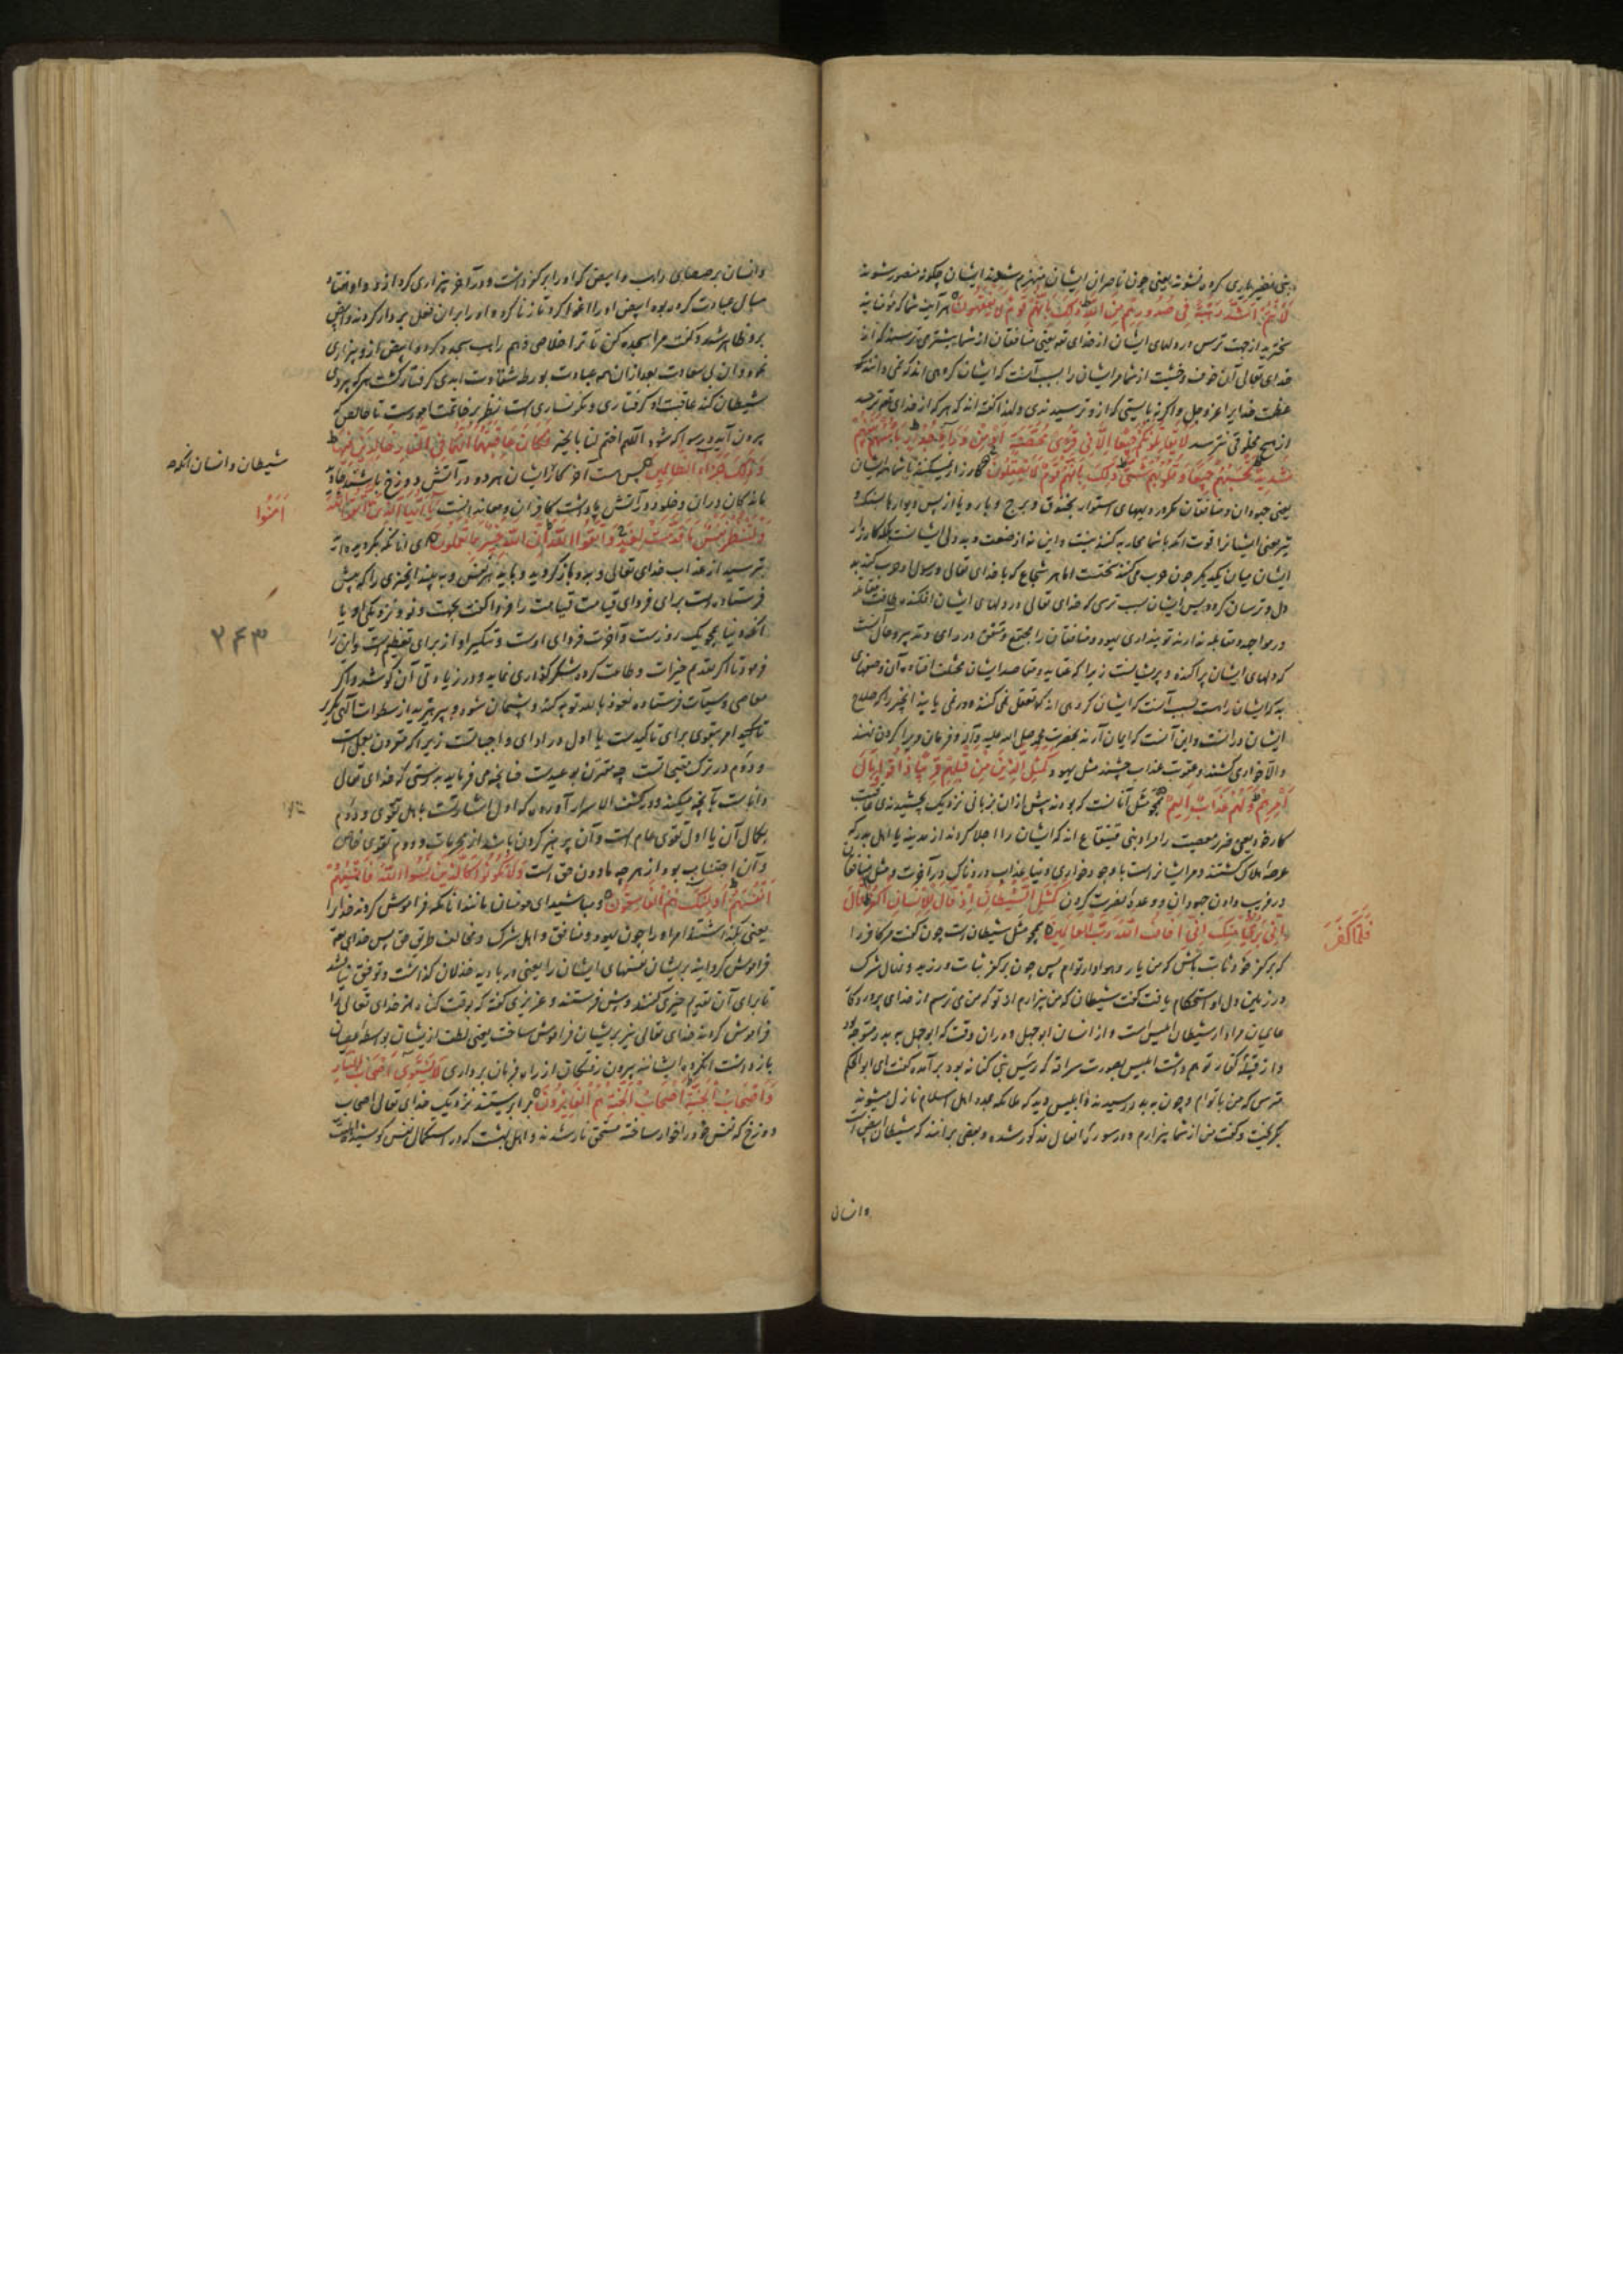 بنی نضیر یاری کرده نشوند یعنی چون ناصران ایشان منهزم شوند ایشان چگونه منصور شوند
لَأَنْتُمْ أَشَدُّ رَهْبَةً فِي صُدُورِهِمْ مِنَ اللَّهِ ذَلِكَ بِأَنَّهُمْ قَوْمٌ لَا يَفْقَهُونَ هر آینه شما که مؤمنانید
سخت‌ترید از جهت ترس در دلهای ایشان از خدای یعنی منافقان از شما بیشتر می‌ترسند که از
خدای تعالی آن خوف و خشیت از شما مر ایشان را بسبب آنست که ایشان گروهی‌اند که نمی‌دانند
عظمت خدایرا عز و جل و اگر نه بایستی که از و ترسیدندی و لهذا گفته‌اند که هر که از خدای ترسد
از هیچ مخلوقی نترسد لَا يُقَاتِلُونَكُمْ جَمِيعًا إِلَّا فِي قُرًى مُحَصَّنَةٍ أَوْ مِنْ وَرَاءِ جُدُرٍ بَأْسُهُمْ بَيْنَهُمْ
شَدِيدٌ تَحْسَبُهُمْ جَمِيعًا وَقُلُوبُهُمْ شَتَّى ذَلِكَ بِأَنَّهُمْ قَوْمٌ لَا يَعْقِلُونَ کارزار نمیکنند با شما همه ایشان
یعنی جهودان و منافقان مگر در دیههای استوار بخندق و برج و باره و یا از پس دیوارها بسنک و
تیر یعنی ایشانرا قوت آنکه با شما محاربه کنند نیست و این نه از ضعف و بددلی ایشانست بلکه کارزار
ایشان میان یکدیگر چون حرب می‌کنند سختست اما هر شجاع که با خدای تعالی و رسول او حرب کند بد
دل و ترسان گردد پس ایشان بسبب ترسی که خدای تعالی در دلهای ایشان افکنده طاقت مقابله
در مواجهه و مقاتله ندارند تو پنداری یهود و منافقان را مجتمع و متفق در رای و تدبیر و حال آنست
که دلهای ایشان پراکنده و پریشانست زیرا که عقاید و مقاصد ایشان مختلف افتاده و آن
بد که ایشان راست بسبب آنست که ایشان گروهی‌اند که تعقل نمی‌کنند و در نمی‌یابند آنچیز را که صلاح
ایشان در آنست و این آنست که ایمان آرند بحضرت محمد صلی الله علیه و آله و فرمان ویرا گردن نهند
والا خواری کشند و عقوبت عذاب چشند مثل یهود كَمَثَلِ الَّذِينَ مِنْ قَبْلِهِمْ قَرِيبًا ذَاقُوا وَبَالَ
أَمْرِهِمْ وَلَهُمْ عَذَابٌ أَلِيمٌ همچو مثل آنانست که بوده‌اند پیش از ان بزمانی نزدیک چشیدند عاقبت
کار خود یعنی ضرر معصیت را مراد بنی قینقاع‌اند که ایشان را اجلا کردند از مدینه یا اهل بدر که
عرضه هلاک گشتند و مر ایشانراست با وجود خواری دنیا عذاب دردناک در آخرت و مثل منافقان
در فریب دادن جهودان و وعده نصرت کردن كَمَثَلِ الشَّيْطَانِ إِذْ قَالَ لِلْإِنْسَانِ اكْفُرْ قَالَ
فَلَمَّا كَفَرَ
إِنِّي بَرِيءٌ مِنْكَ إِنِّي أَخَافُ اللَّهَ رَبَّ الْعَالَمِينَ همچو مثل شیطان است چون گفت مر کافر را
که بر کفر خود ثابت باش که من یار و هوادار توام پس چون بر کفر ثبات ورزید و نهال شرک
در زمین دل او استحکام یافت گفت شیطان که من بیزارم از تو که من می‌ترسم از خدای پروردگار
عالمیان مراد از شیطان ابلیس است و از انسان ابوجهل و در ان وقت که ابوجهل به بدر متوجه بود
و از قبیله کنانه توهم داشت ابلیس بصورت سراقه که رئیس بنی کنانه بود بر آمده گفت ای ابوالحکم
مترس که من با توام و چون به بدر رسیدند و ابلیس دید که ملائکه بمدد اهل اسلام نازل میشوند
بگریخت و گفت من از شما بیزارم و در سوره انفال مذکور شده و بعضی برانند که شیطان ابیض است
و انسان
و انسان برصیصای راهب و ابیض که او را بر کفر داشت و در آخر بیزاری کرد از و و او هفتاد
سال عبادت کرده بود ابیض او را اغوا کرد تا زنا کرد و او را بران فعل بر دار کردند و ابیض
برو ظاهر شد و گفت مرا سجده کن تا ترا خلاصی دهم راهب سجده کرد و ابیض از و بیزاری
نمود و آن بی سعادت بعد از ان همه عبادت بورطه شقاوت ابدی گرفتار گشت هر که پیروی
شیطان کند عاقبت او گرفتاری و نگونساری است بنظر بر خاتمت امورست تا خالص که
بیرون آید و رسوا که شود اللهم اختم لنا بالخیر فَكَانَ عَاقِبَتَهُمَا أَنَّهُمَا فِي النَّارِ خَالِدَيْنِ فِيهَا
شیطان و انسان آنکه
وَذَلِكَ جَزَاءُ الظَّالِمِينَ پس هست آخر کار ایشان هر دو در آتش دوزخ باشند جاوید
ماندگان دران و خلود در آتش پاداشت کافران و معاندانست يَا أَيُّهَا الَّذِينَ اتَّقُوا اللَّهَ
آمَنُوا
وَلْتَنْظُرْ نَفْسٌ مَا قَدَّمَتْ لِغَدٍ وَاتَّقُوا اللَّهَ إِنَّ اللَّهَ خَبِيرٌ بِمَا تَعْمَلُونَ ای آنانکه بگرویده‌اند
بترسید از عذاب خدای تعالی و بدو بازگردید و باید که هر نفس و ببیند آنچیزی را که پیش
فرستاده است برای فردای قیامت قیامت را فردا گفت بجهت دنو و نزدیکی او یا
۲۶۳
آنکه دنیا همچو یک روزست و آخرت فردای اوست و تنکیر او از برای تعظیم است و این را
فرمود تا اگر تقدیم خیرات و طاعت کرده شکرگذاری نماید و در زیادتی آن کوشد و اگر
معاصی و سیئات فرستاده نعوذ بالله توبه کند و پشیمان شود و بپرهیزید از سطوات الهی تکرار
تاکید امر بتقوی برای تاکیدست یا اول در ادای واجباتست زیرا که مقرون بعمل است
و دوم در ترک مقبحاتست چه مقترن بوعیدست چنانچه می‌فرماید بدرستی که خدای تعالی
داناست بآنچه میکنند و در کشف الاسرار آورده که اول اشارتست باهل تقوی و دوم
بکمال آن یا اول تقوی عام است و آن پرهیز کردن باشد از محرمات و دوم تقوی خاص
و آن اجتناب بود از هر چه مادون حق است وَلَا تَكُونُوا كَالَّذِينَ نَسُوا اللَّهَ فَأَنْسَاهُمْ
أَنْفُسَهُمْ أُولَئِكَ هُمُ الْفَاسِقُونَ و مباشید ای مؤمنان مانند آنانکه فراموش کردند خدا را
یعنی بگذاشتند امر او را چون یهود و منافق و اهل شرک و مخالف طریق حق پس خدای تعالی
فراموش گردانید بریشان نفسهای ایشان را یعنی در بادیه خذلان گذاشت و توفیق نیافتند
تا برای آن تقدیم خیری کنند و پیش فرستند و عزیزی گفته که بوقت گناه امر خدای تعالی را
فراموش کردند خدای تعالی نیز بریشان فراموش ساخت یعنی لطف از ایشان بواسطه عصیان
باز داشت آنگروه ایشانند بیرون رفتگان از راه فرمان برداری لَا يَسْتَوِي أَصْحَابُ النَّارِ
وَأَصْحَابُ الْجَنَّةِ أَصْحَابُ الْجَنَّةِ هُمُ الْفَائِزُونَ برابر نیستند نزدیک خدای تعالی اصحاب
دوزخ که نفس خود را خوار ساخته مستحق نار شدند و اهل بهشت که در استکمال نفس کوشیده